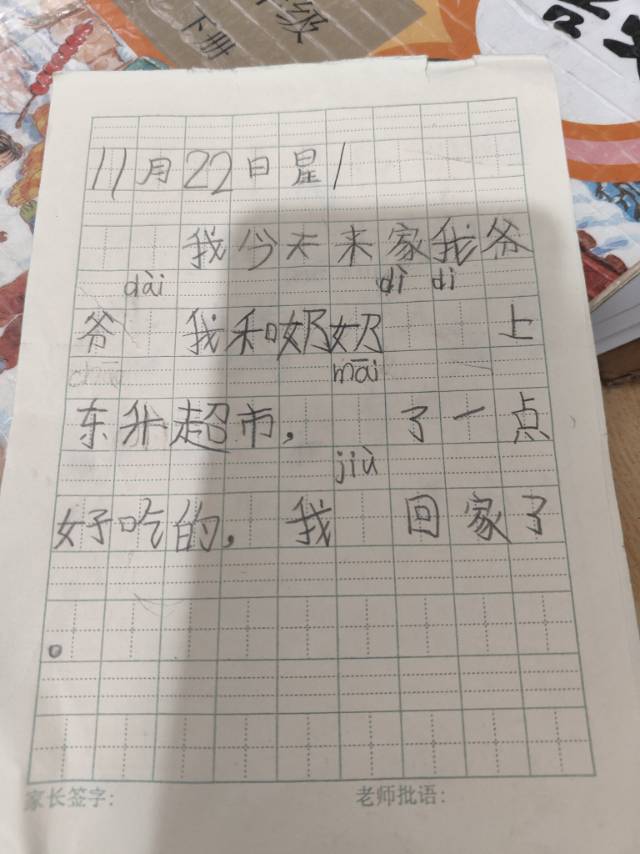 级
下册
11月22日星1
我今天来家我爷
dài dì dì
爷 我和奶奶 上
māi
东升超市， 了一点
jiù
好吃的， 我 回家了
。
家长签字： 老师批语：